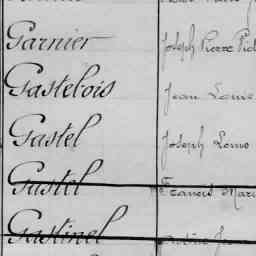 Garnier Joseph Pierre
Gastelois Jean Louis
Gastel Joseph Louis
Gastel Francis
Gastinel